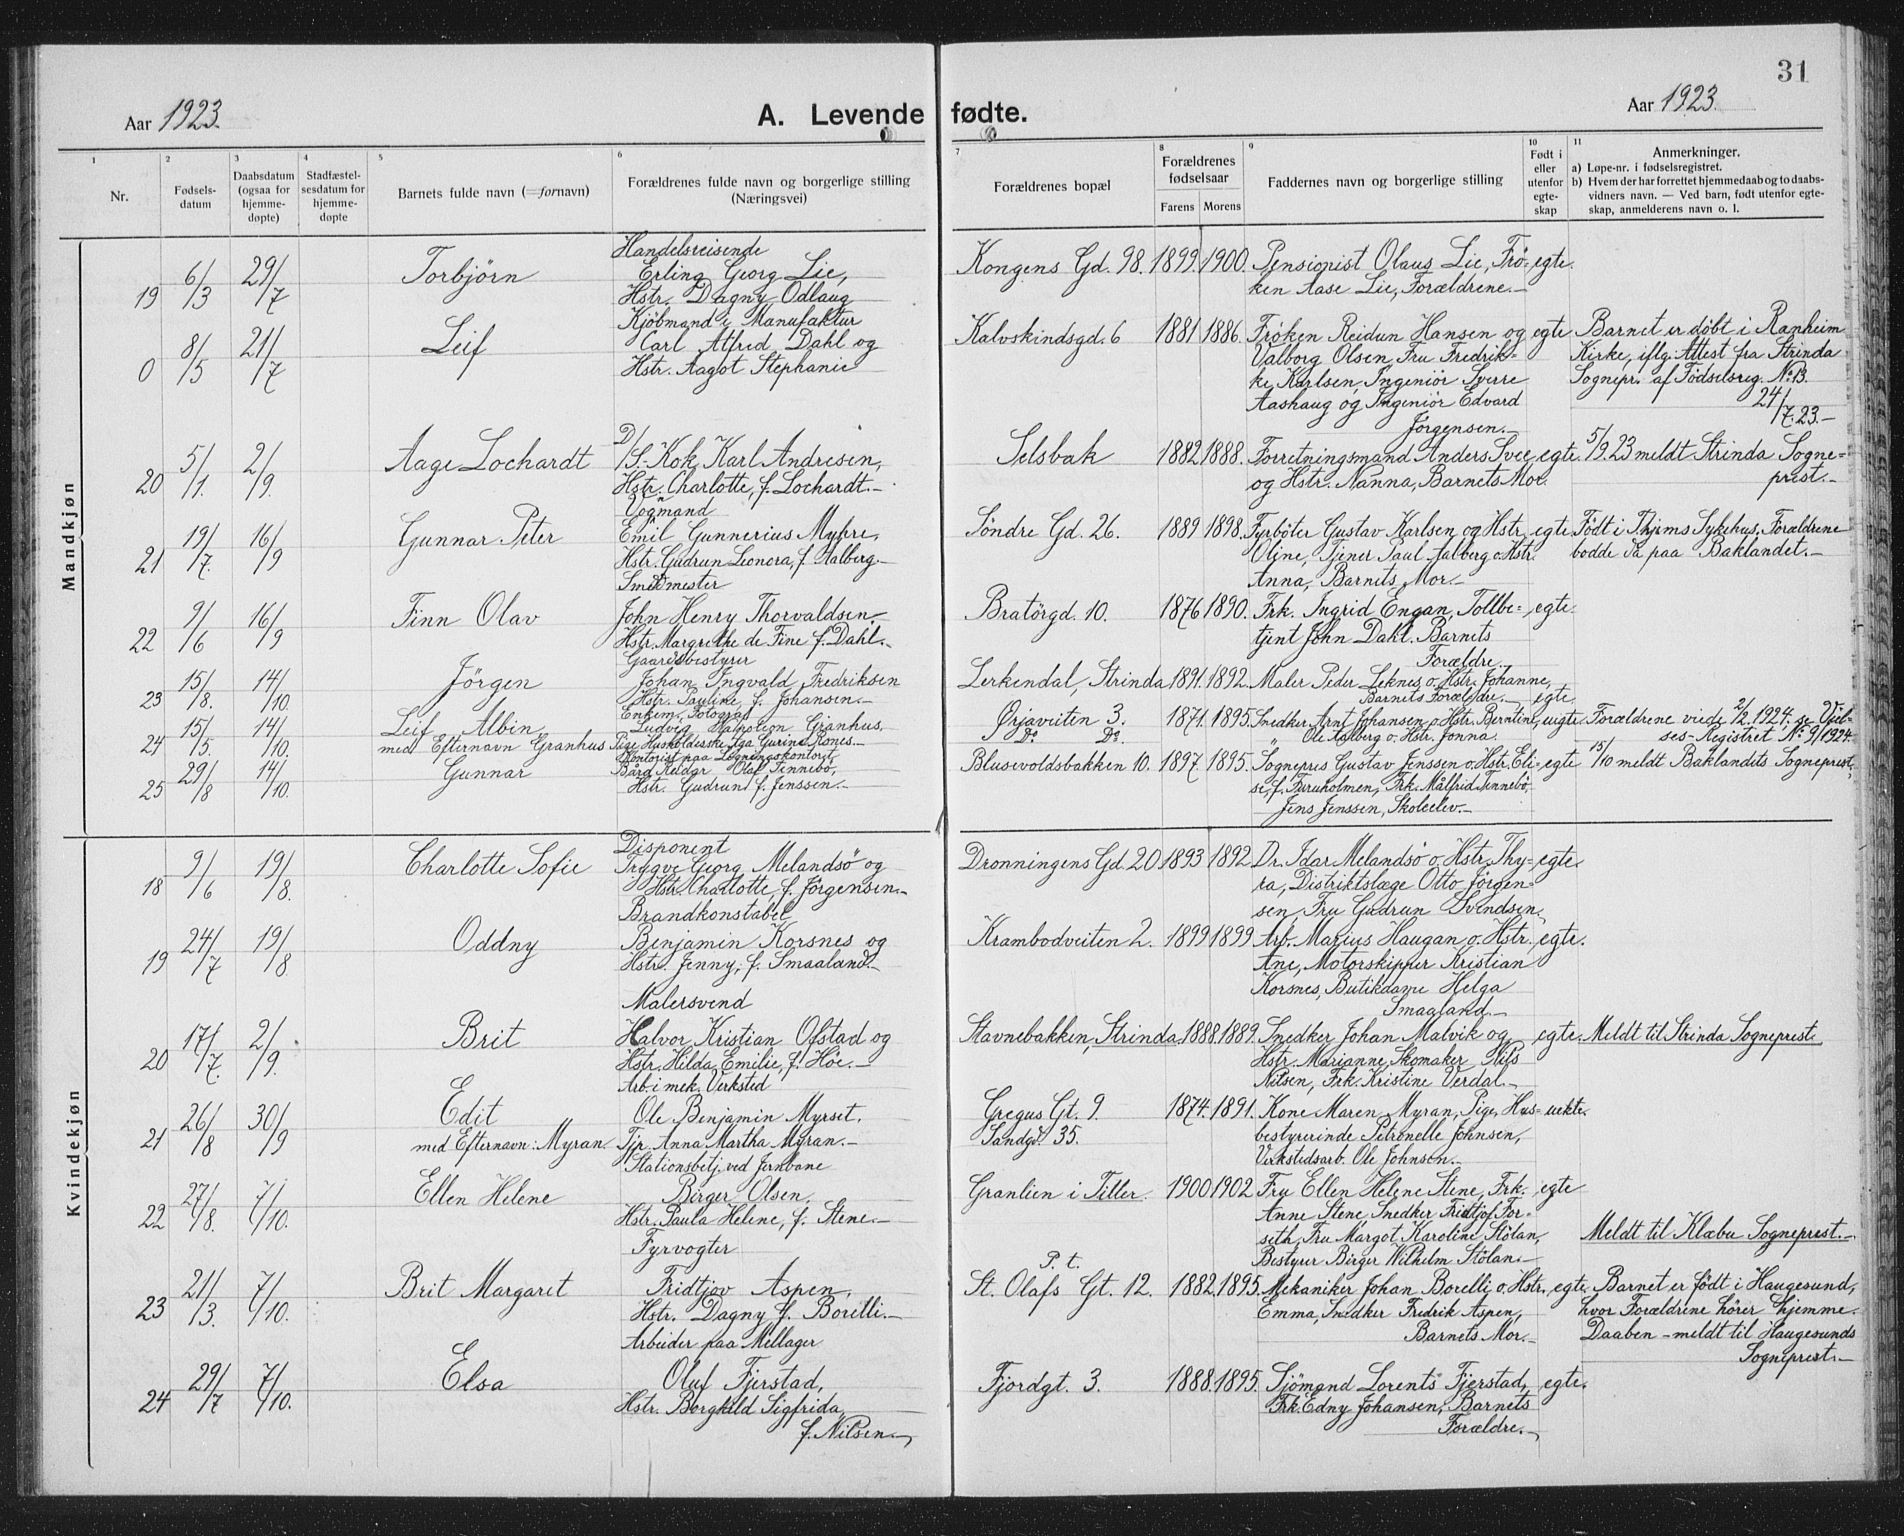 31
Aar 1923.
A. Levende fødte.
Aar 1923.
1 2 3 4 5 6 7 8 9 10 11
Nr.
Fødsels-
datum
Daabsdatum
(ogsaa for
hjemme-
døpte)
Stadfæstel-
sesdatum for
hjemme-
døpte
Barnets fulde navn (=fornavn)
Forældrenes fulde navn og borgerlige stilling
(Næringsvei)
Forældrenes bopæl
Forældrenes
fødselsaar
Farens Morens
Faddernes navn og borgerlige stilling
Født i
eller
utenfor
egte-
skap
Anmerkninger.
a) Løpe-nr. i fødselsregistret.
b) Hvem der har forrettet hjemmedaab og to daabs-
vidners navn. — Ved barn, født utenfor egte-
skap, anmelderens navn o. l.
Mandkjøn
19 6/3 29/7 Torbjörn
Handelsreisende
Erling Georg Lie,
Hstr. Dagny Odlaug
Kongens Gd. 98. 1899 1900.
Pensionist Olaus Lie, Frö-
ken Aase Lie, Forældrene.-
egte.
0 8/5 21/7 Leif
Kjöbmand i Manufaktur
Carl Alfred Dahl og
Hstr. Aagot Stephanie
Kalvskindsgd. 6 1881 1886.
Fröken Reidun Hansen og
Valborg Olsen, Fru Fredrik-
ke Karlsen, Ingeniör Sverre
Aashaug og Ingeniör Edvard
Jörgensen.-
egte
Barnet er döbt i Ranheim
Kirke, iflg. Attest fra Strinda
Sognepr. af Födselsreg. No 13.
24/7. 23.-
20 5/1. 2/9. Aage Lochardt
D/S.-Kok Karl Andresen,
Hstr. Charlotte, f. Lochardt.-
Selsbak 1882 1888.
Forretningsmand Anders Svee
og Hstr. Nanna, Barnets Mor.
egte.
5/9. 23 meldt Strinda Sogne-
prest.-
21 19/7. 16/9 Gunnar Peter
Vogmand
Emil Gunnerius Myhre,
Hstr. Gudrun Leonora, f. Aalberg.-
Söndre Gd. 26. 1889 1898.
Fyrböter Gustav Karlsen og Hstr.
Oline, Tjener Paul Aalberg o. Hstr.
Anna, Barnets Mor.-
egte
Födt i Thjems Sykehus. Forældrene
bodde da paa Baklandet.-
22 9/6 16/9 Finn Olav
Smedmester
John Henry Thorvaldsen,
Hstr. Margrethe de Fine f. Dahl.-
Bratörgd. 10. 1876 1890.
Frk. Ingrid Engan, Tollbe-
tjent John Dahl. Barnets
Forældre.
egte.
23 15/8. 14/10. Jörgen
Gaardsbestyrer
Johan Ingvald Fredriksen
Hstr. Pauline, f. Johansen.-
Lerkendal, Strinda 1891. 1892.
Maler Peder Leknes, o. Hstr. Johanne,
Barnets Forældre.-
egte
24 15/5. 14/10. Leif Albin,
med Efternavn Granhus
Enkem., Fotograf
Ludvig Napoleon Granhus,
Pige Husholderske Aga Gurine Rones.-
Ørjaveiten 3. 1871. 1895.
Do Do.
Snedker Arnt Johansen o. Hstr. Berntine,
" Ole Aalberg o. Hstr. Jonna.
uegte
Forældrene viede 2/2. 1924. se Viel-
ses-Registret No 9/1924.
25 29/8 14/10. Gunnar
Kontorist paa Ligningskontoret
Bård Reidar Olaf Tennebö,
Hstr. Gudrun f. Jenssen.-
Blusevoldsbakken 10. 1897. 1895.
Sognepres Gustav Jenssen o. Hstr. Eli-
se, f. Furuholmen, Frk. Målfrid Tennebö,
Jens Jenssen, Skoleelev.-
egte
15/10 meldt Baklandets Sogneprest.
Kvindekjøn
18 9/6 19/8. Charlotte Sofie
Disponent
Trygve Georg Melandsö og
Hstr. Charlotte, f. Jörgensen.-
Dronningens Gd. 20 1893 1892.
Dr. Idar Melandsö o. Hstr. Thy-
ra, Distriktslæge Otto Jörgen-
sen, Fru Gudrun Svendsen,
egte
19 24/7 19/8 Oddny
Brandkonstabel
Benjamin Korsnes og
Hstr. Jenny, f. Smaaland.-
Krambodveiten 2. 1899 1899
Arb. Marius Haugan o. Hstr.
Ane, Motorskipper Kristian
Korsnes, Butikdame Helga
Smaaland.-
egte.
20 17/7. 2/9. Brit
Malersvend
Halvor Kristian Ofstad og
Hstr. Hilda Emilie, f. Höe.-
Stavnebakken, Strinda. 1888. 1889.
Snedker Johan Malvik og
Hstr. Marianne, Skomaker Nils
Nilsen, Frk. Kristine Verdal.-
egte.
Meldt til Strinda Sogneprest.
21 26/8 30/9 Edit
med Efternavn: Myran.
Arb. i mek. Verksted
Ole Benjamin Myrset,
Tjp. Anna Martha Myran.-
Gregus Gt. 9. 1874. 1891.
Sandgd. 35.
Kone Maren Myran, Pige, Hus-
bestyrerinde Petronelle Johnsen,
Verkstedsarb. Ole Johnsen.-
uekte.
22 27/8. 7/10. Ellen Helene
Stationsbetj. ved Jernbane
Birger Olsen,
Hstr. Paula Helene, f. Stene.-
Granlien i Tiller. 1900 1902
Fru Ellen Helene Stene, Frk.
Anne Stene, Snedker Fridtjof For-
seth, Fru Margot Karoline Stölan,
Bestyrer Birger Wilhelm Stölan.-
egte
Meldt til Klæbu Sogneprest.-
23 21/3. 7/10. Brit Margaret
Fyrvogter
Fridtjov Aspen,
Hstr. Dagny f. Borelli.-
P. t.
St. Olafs Gt. 12. 1882. 1895.
Mekaniker Johan Borelli o. Hstr.
Emma, Snedker Fredrik Aspen,
Barnets Mor.-
egte.
Barnet er födt i Haugesund,
hvor Forældrene hörer hjemme.
Daaben - meldt til Haugesunds
Sogneprest.-
24 29/7 7/10. Elsa
Arbeider paa Mellager
Oluf Fjerstad,
Hstr. Borghild Sigfrida,
f. Nilsen.-
Fjordgt. 3. 1888. 1895.
Sjömand Lorents Fjerstad,
Frk. Edny Johansen, Barnets
Forældre.-
egte.